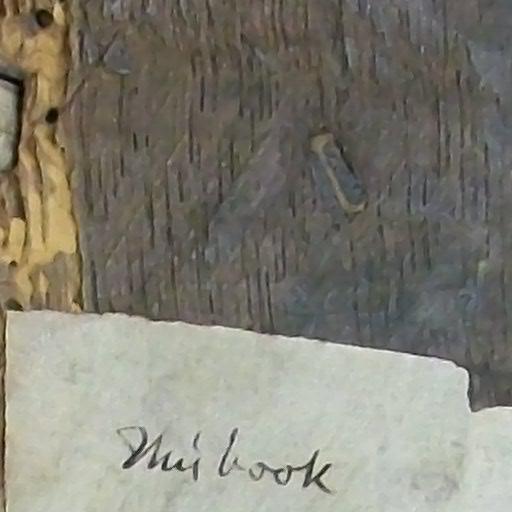 This book